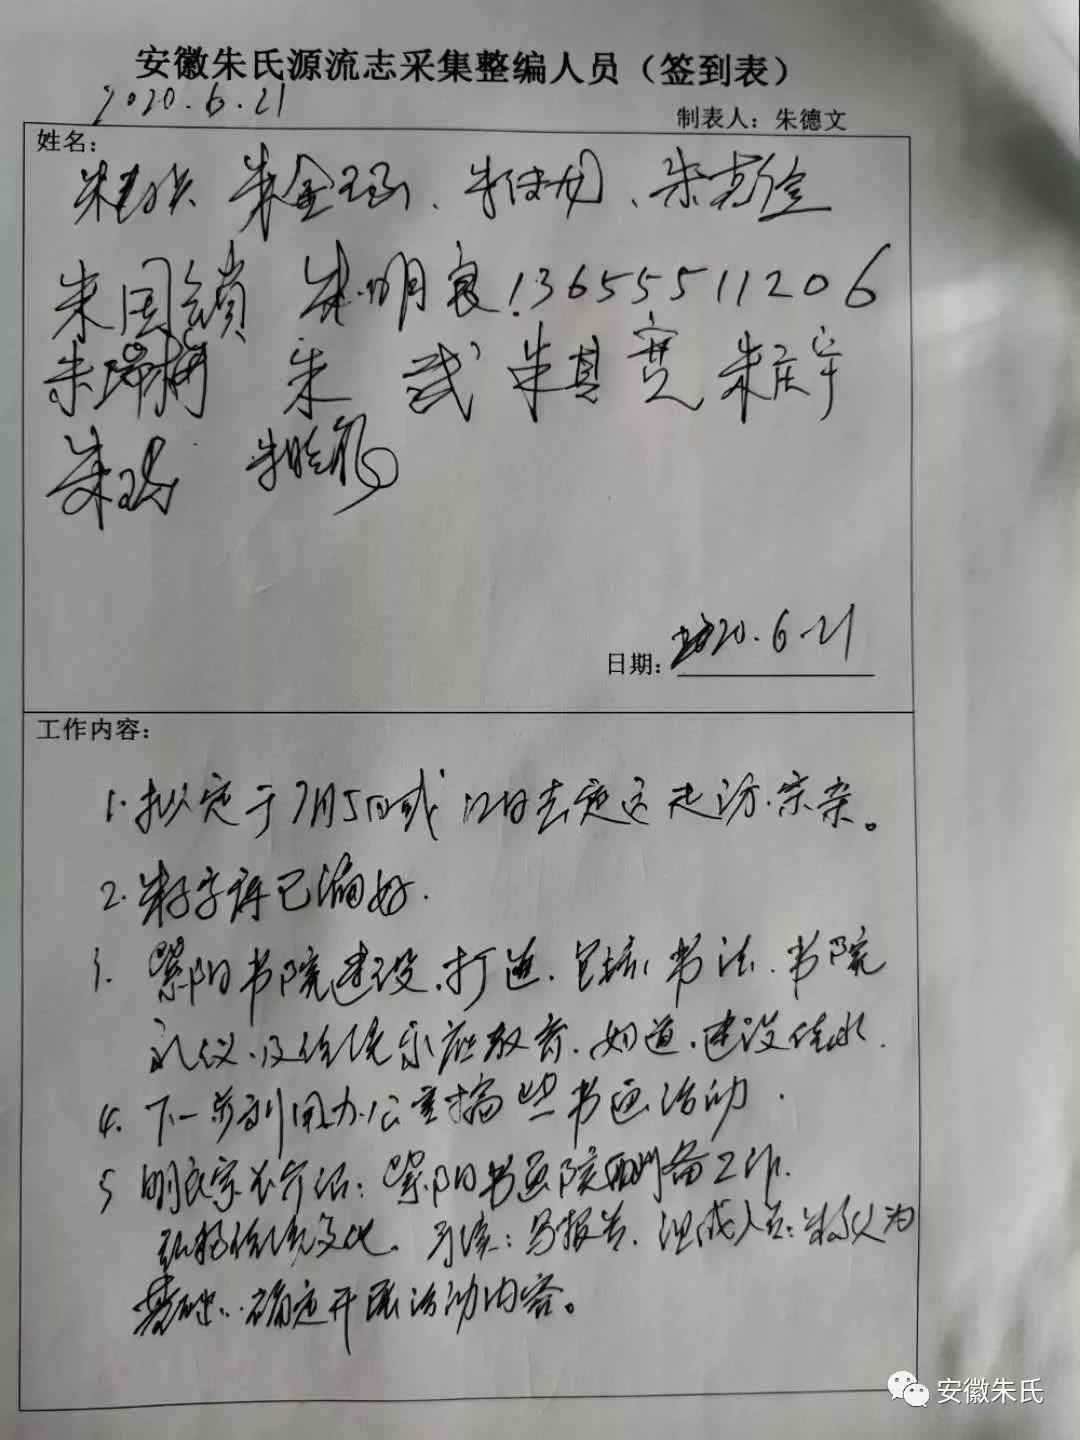 安徽朱氏源流志采集整编人员（签到表）
2020.6.21
制表人：朱德文
姓名：
朱金
朱国锁 朱明良13655511206
朱瑞梅 朱武 朱其宽 朱庆宇
朱
日期：2020.6.21
工作内容：
1.拟定于7月5日或12日去定远走访宗亲。
2.朱子字辞已编好.
3.紫阳书院建设.打造.包括:书法.书院
礼仪.及传统家庭教育.如道.建设
4.下一步利用办公室搞些书画活动.
5 明良宗长介绍:紫阳书画院酬备工作.
弘扬传统文化。手续:写报告.组成人员:为
基础..确定开展活动内容。
安徽朱氏